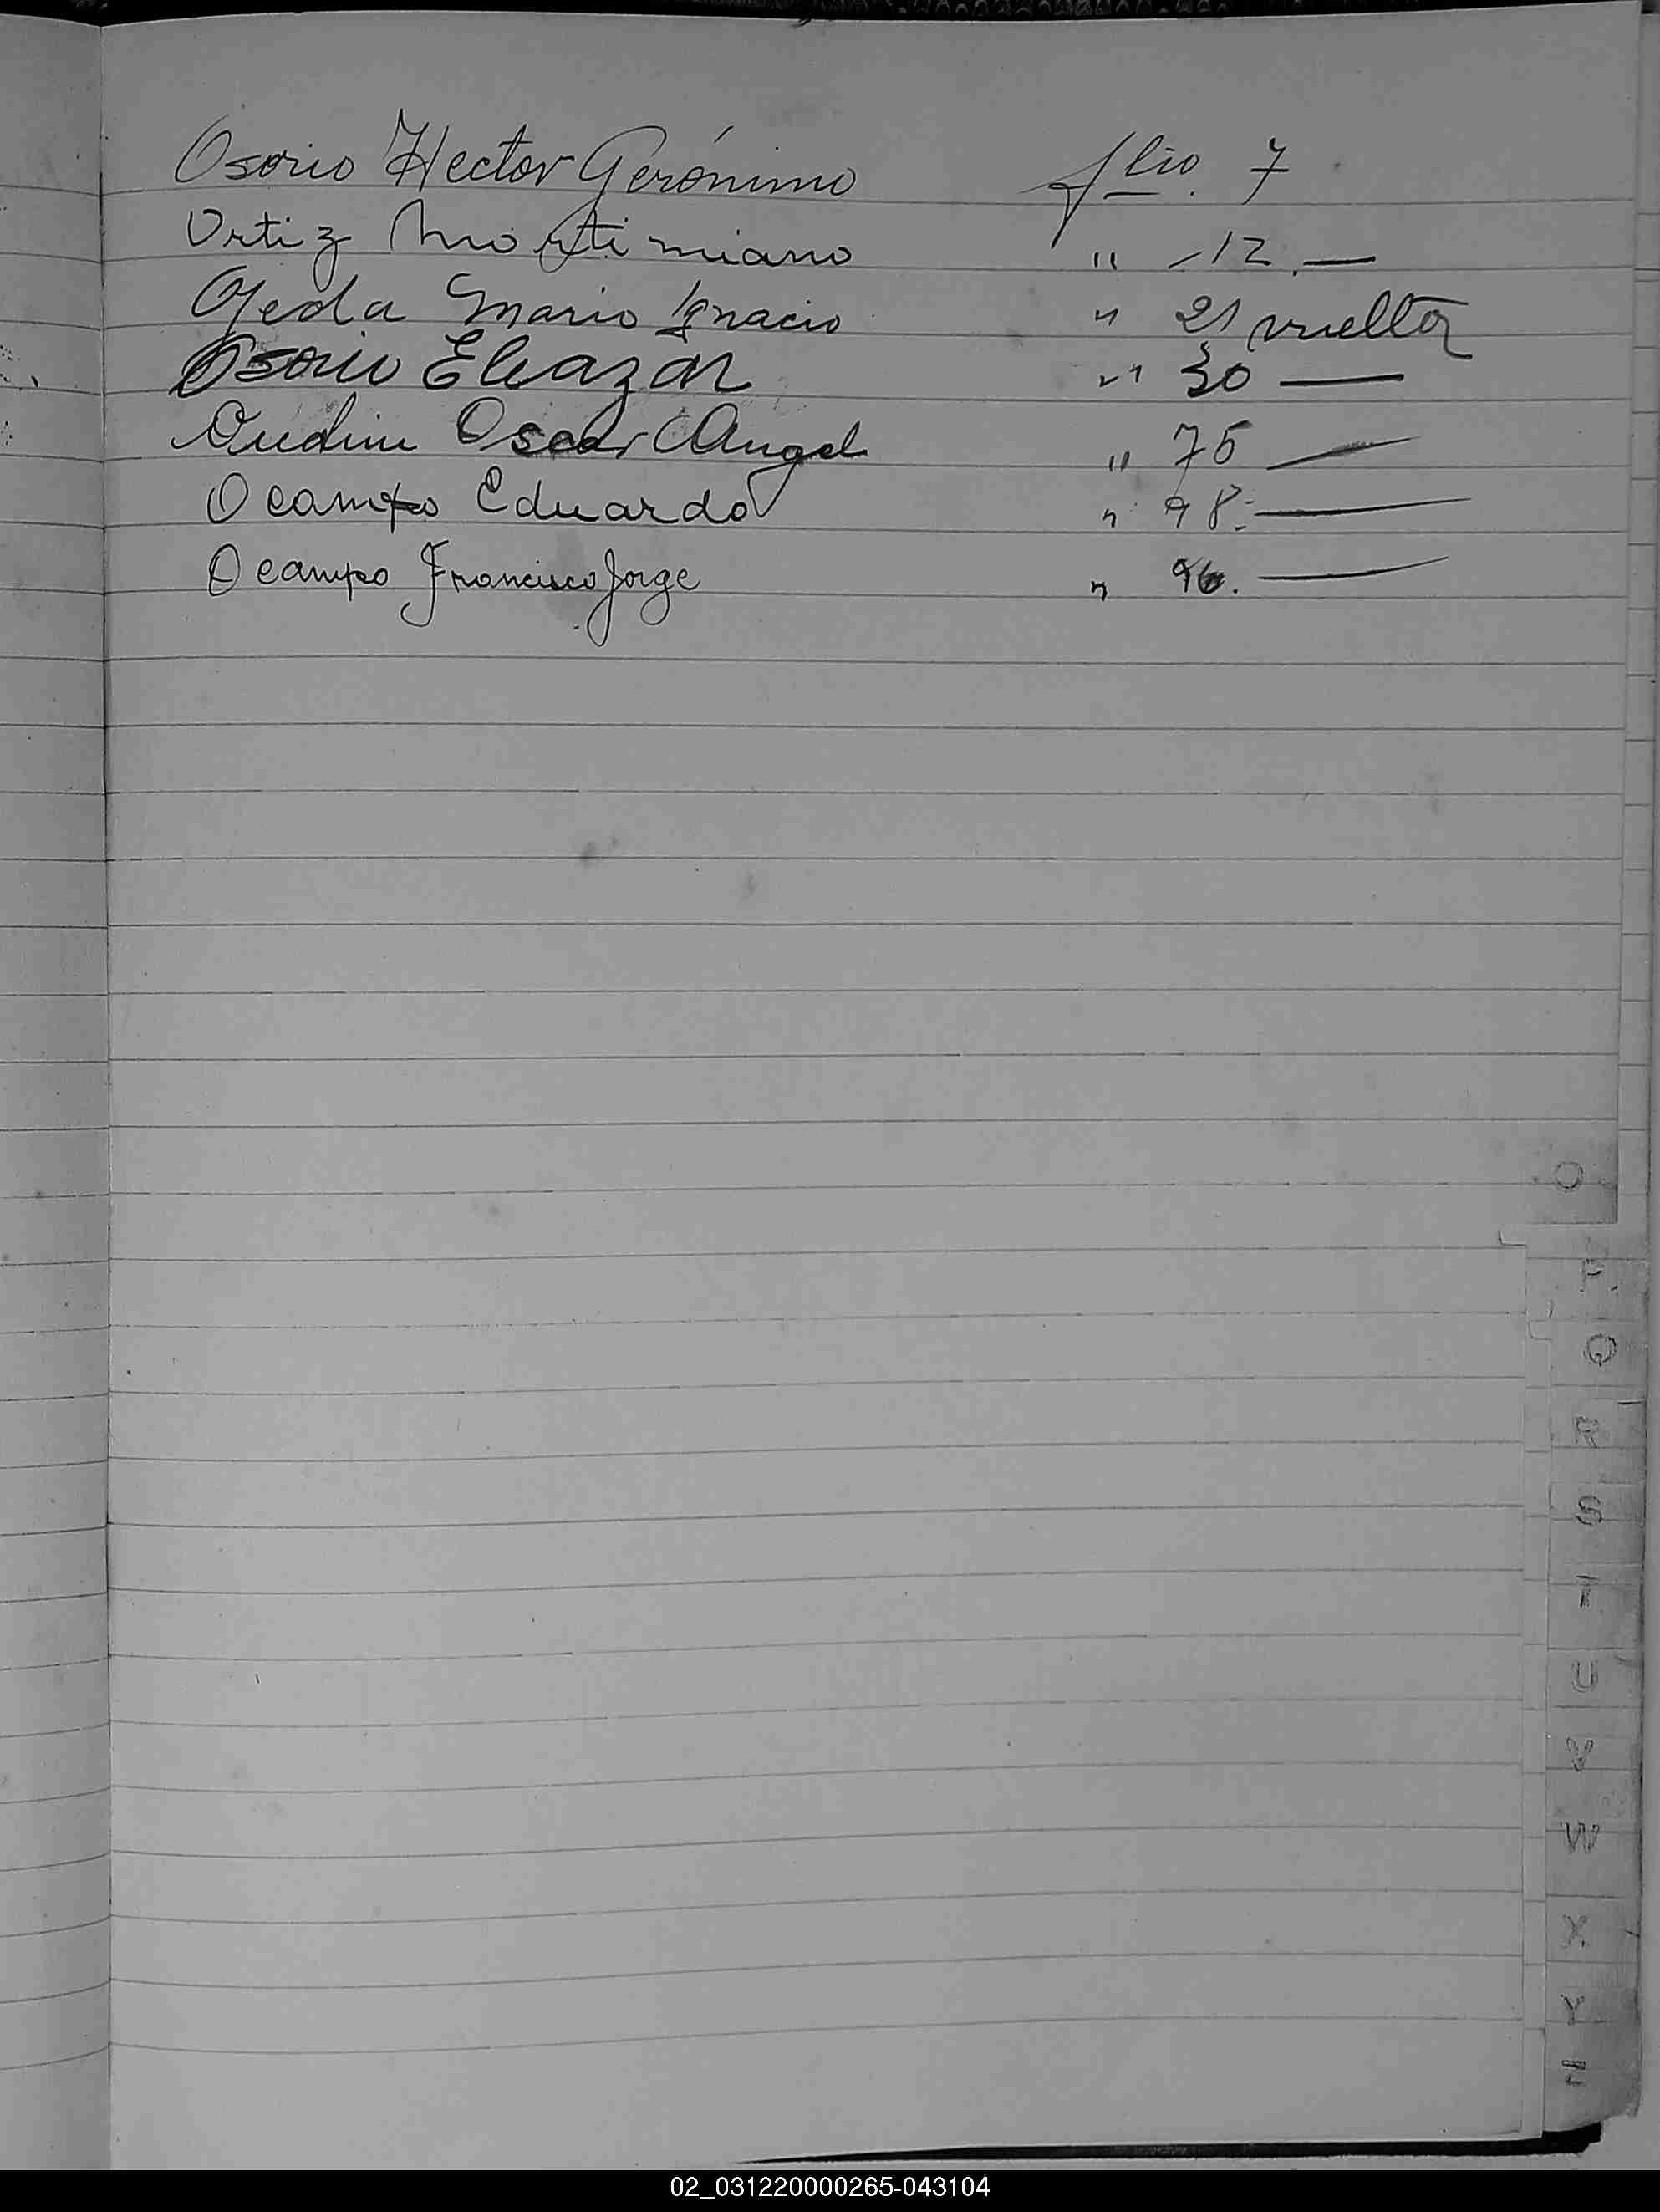 Osorio Hector Gerónimo flio. 7
Ortiz Mortimiano " 12.—
Ojeda Mario Ignacio " 21 vuelta
Osorio Eleazar " 30 —
Oscar Angel " 75 —
Ocampo Eduardo " 98.—
Ocampo Francisco Jorge " 96. —
O
P
Q
R
S
T
U
V
W
X
Y
Z
02_031220000265-043104